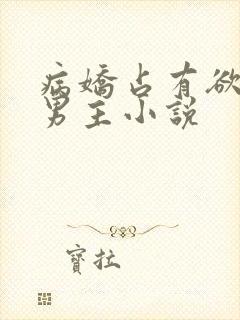 病嬌占有欲
男主小說
寶拉